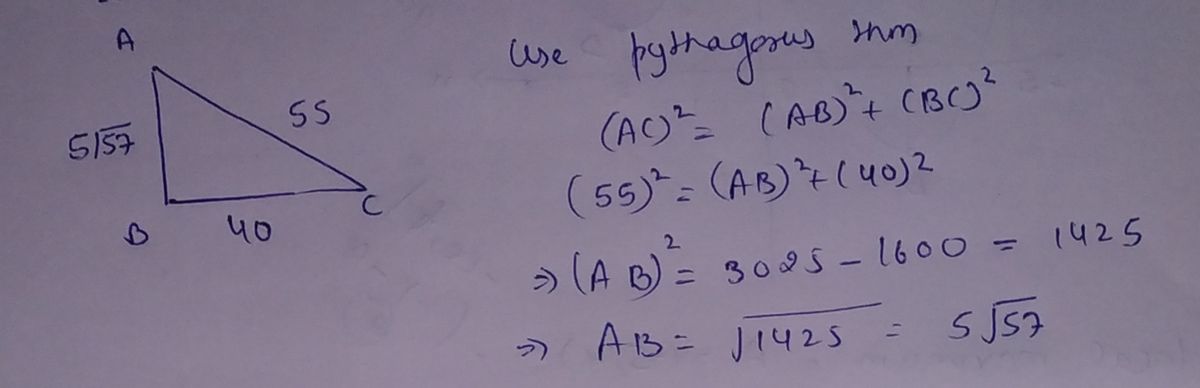 A
55
5√57
B
40
C
Use pythagorus thm
(AC)² = (AB)² + (BC)²
(55)² = (AB)² + (40)²
⇒ (AB)² = 3025 - 1600 = 1425
⇒ AB = √1425 = 5√57